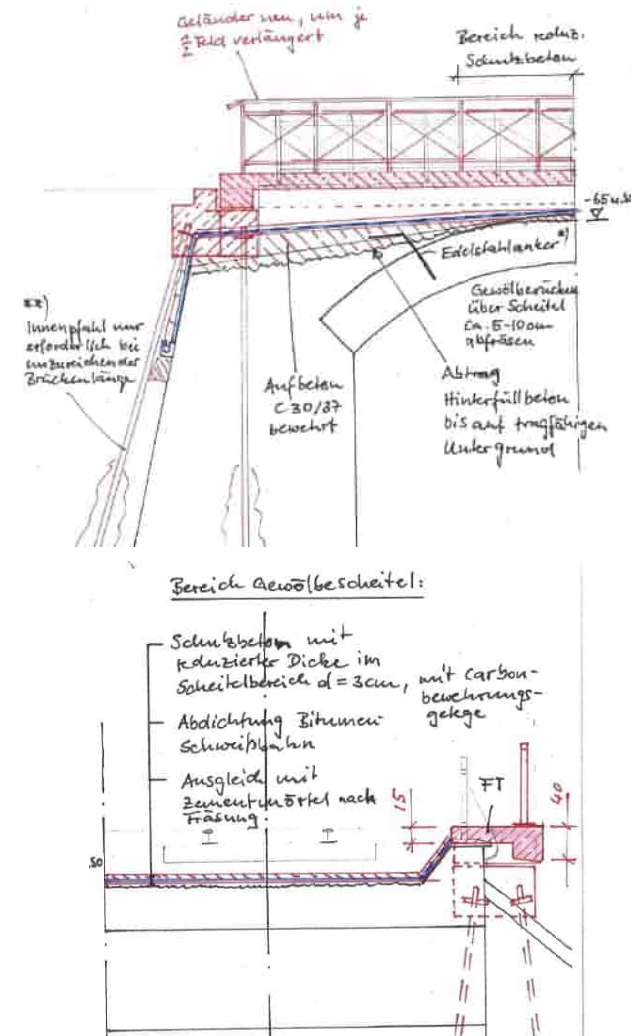 Geländer neu, um je
1/2 Feld verlängert
Bereich reduz.
Schutzbeton
-65
Edelstahlanker*)
Gewölberücken
über Scheitel
ca. 5-10cm
abfräsen
**)
Innenpfahl nur
erforderlich bei
unzureichender
Brückenlänge
Aufbeton
C 30/37
bewehrt
Abtrag
Hinterfüllbeton
bis auf tragfähigen
Untergrund
Bereich Gewölbescheitel:
Schutzbeton mit
reduzierter Dicke im
Scheitelbereich d = 3cm, mit Carbon-
bewehrungs-
gelege
Abdichtung Bitumen-
Schweißbahn
Ausgleich mit
Zementmörtel nach
Fräsung.
15
FT
40
.50